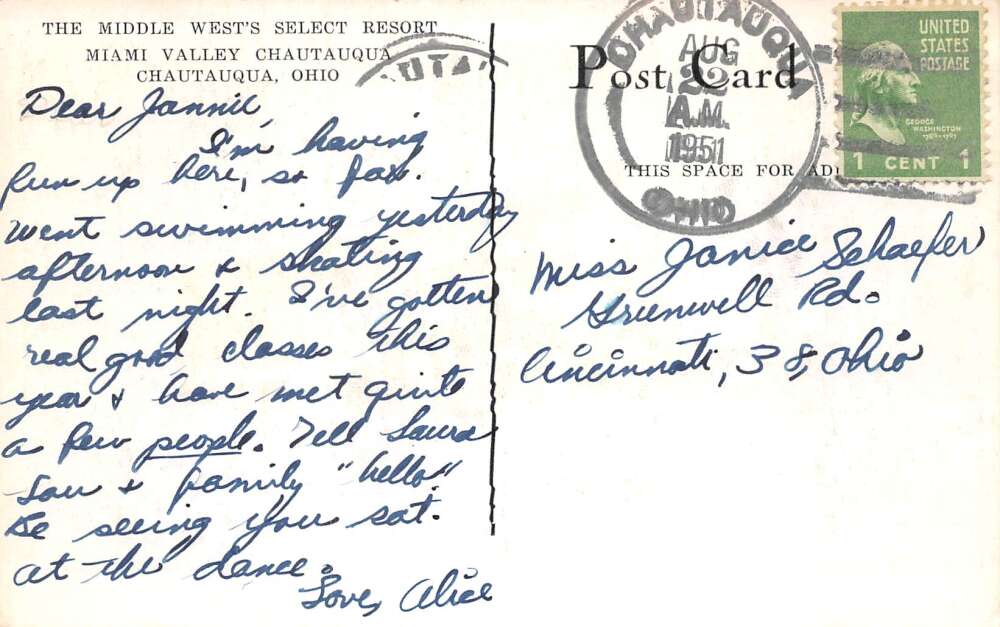 THE MIDDLE WEST'S SELECT RESORT
MIAMI VALLEY CHAUTAUQUA
CHAUTAUQUA, OHIO
Dear Jannie,
I'm having
fun up here, so far.
Went swimming yesterday
afternoon & skating
last night. I've gotten
real good classes this
year & have met quite
a few people. Tell Laura
Lou & family "hello"
Be seeing you sat.
at the dance.
Love, Alice
UTAU
Post Card
CHAUTAUQUA
AUG
22
A.M.
1951
OHIO
THIS SPACE FOR AD
UNITED
STATES
POSTAGE
GEORGE
WASHINGTON
1789-1797
1 CENT 1
Miss Janice Schaefer
Gruenwell Rd.
Cincinnati, 38, Ohio